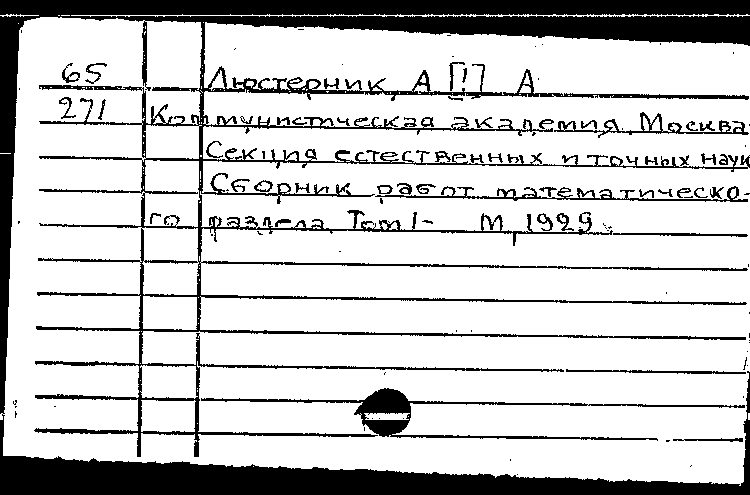 65 Люстерник, А [!] А
271 Коммунистическая академия, Москва
Секция естественных и точных наук
Сборник работ математическо-
го раздела. Том 1- М, 1929.